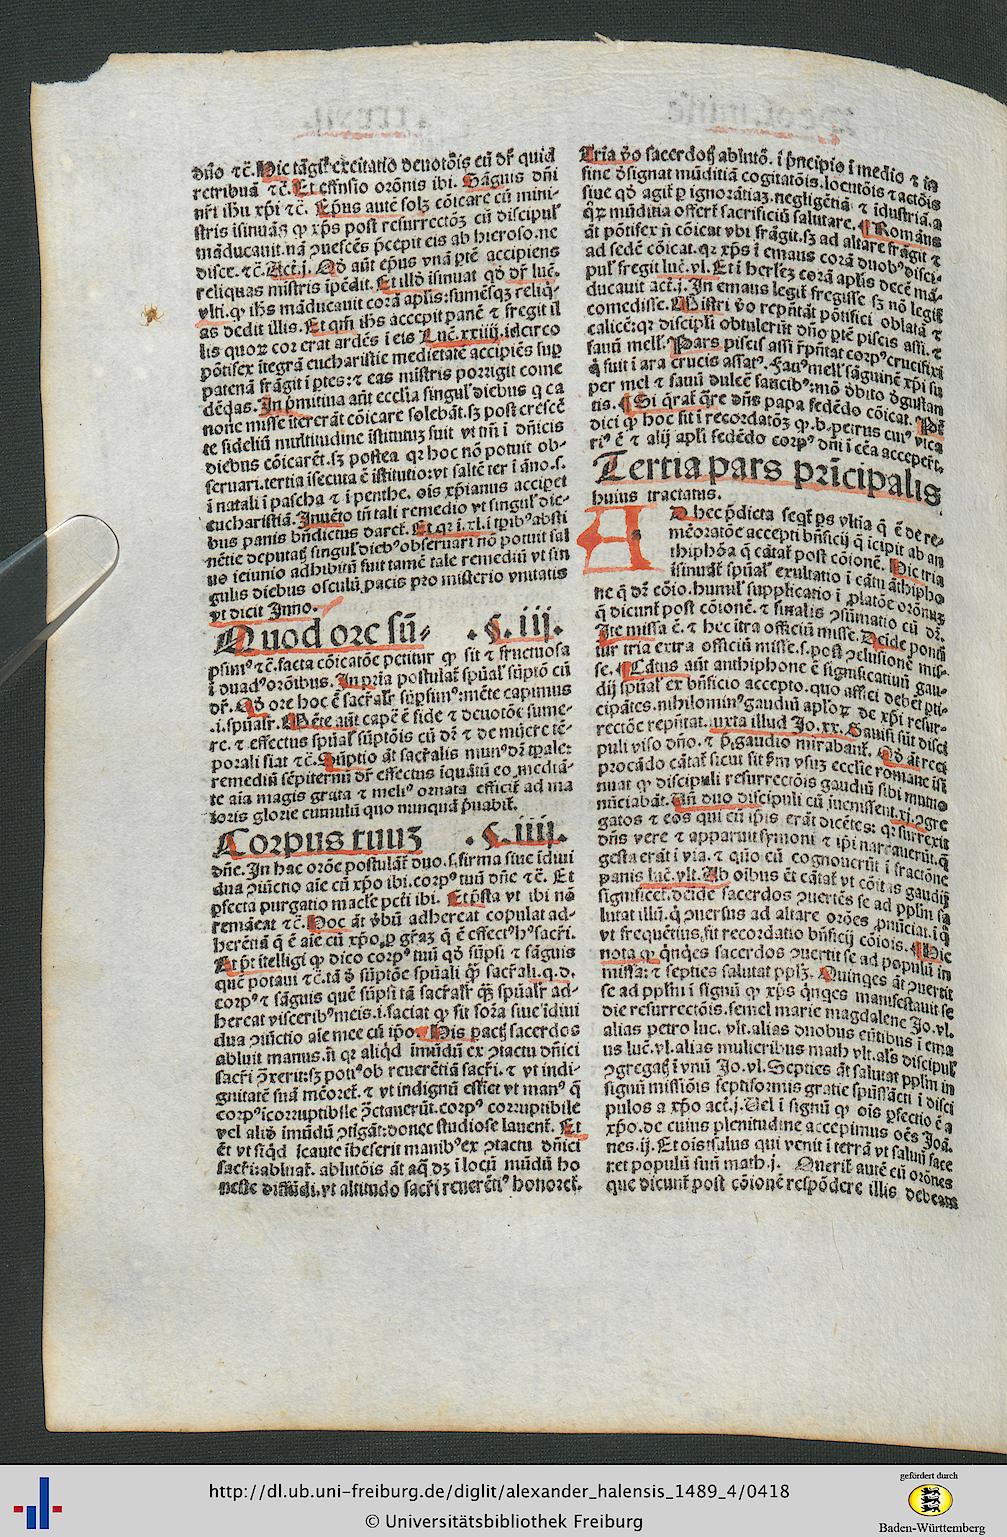 dño ⁊c̃. Hic tãgit᷑ excitatio deuotõis cũ dr̃ quid
retribuã ⁊c̃. Et effusio orõnis ibi. Sãguis dñi
nr̃i ihu xp̃i ⁊c̃. Ep̃us autẽ solꝫ cõicare cũ mini-
stris isinuãs ꝙ xp̃s post resurrectõꝫ cũ discipul᷑
mãducauit. nã ꝯuescẽs p̃cepit eis ab hieroso. ne
disce. ⁊c̃. Act̃. j. Qđ aũt ep̃us vnã ptẽ accipiens
reliquas mistris ipẽdit. Et illđ isinuat qđ dr̃ luc̃.
vlti. ꝙ ihs mãducauit corã aplis: sumẽsqꝫ reliq̃-
as dedit illis. Et qm̃ ihs accepit panẽ ⁊ fregit il
lis quoꝝ cor erat ardẽs i eis Luc̃. xxiiij. idcirco
põtifex itegrã eucharistie medietatẽ accipiẽs sup
patenã frãgit i ptes: ⁊ eas mistris porrigit come
dẽdas. In p̃mitiua aũt ecclia singul᷑ diebus q ca
none misse iterẽrãt cõicare solebãt. sꝫ post crescẽ
te fideliũ multitudine istitutuꝫ fuit vt tm̃ i dñicis
diebus cõicarẽt. sꝫ postea qꝛ hoc nõ potuit ob-
seruari. tertia isecuta ẽ istitutio: vt saltẽ ter i ãno. s.
i natali i pascha ⁊ i penthe. ois xp̃ianus accipet
eucharistiã. Inuẽto tñ tali remedio vt singul᷑ die-
bus panis bñdictus daret᷑. Et qꝛ i. xl. i tpibꝰ absti
nẽtie deputatꝭ singul᷑ diebꝰ obseruari nõ potuit tal
uo ieiunio adhibitũ fuit tamẽ tale remediũ vt sin
gulis diebus osculũ pacis pro misterio vnitatis
vt dicit Inno.
Quod ore sũ- . ¶. iij.
psimꝰ ⁊c̃. facta cõicatõe petitur ꝙ sit ⁊ fructuosa
i duabꝰ orõibus. In p̃ria postulat᷑ spũal᷑ sũptõ cũ
dr̃. Qđ ore hoc ẽ sacr̃alr̃ sũpsimꝰ: mẽte capimus
.i. spũalr̃. Mẽte aũt capẽ ẽ fide ⁊ deuotõe sume-
re. ⁊ effectus spũal᷑ sũptõis cũ dr̃ ⁊ de mũere tẽ-
porali fiat ⁊c̃. Sũptio ãt sacr̃alis munꝰ dr̃ tpale:
remediũ sẽpiternũ dr̃ effectus iquãtũ eo mediã-
te aĩa magis grata ⁊ meliꝰ ornata efficit᷑. ad ma
ioris glorie cumulũ quo nunquã p̃uabit᷑.
Corpus tuuꝫ . ¶. iiij.
dñe. In hac orõe postulãt᷑ duo. s. firma siue idiui
dua ꝯiũctio aĩe cũ xp̃o ibi. corpꝰ tuũ dñe ⁊c̃. Et
pfecta purgatio macl̃e pcti ibi. Et p̃sta vt ibi nõ
remãeat ⁊c̃. Hoc ãt v̾bũ adhereat copulat ad-
herẽtiã q̃ ẽ aĩe cũ xp̃o ꝑ gr̃aꝫ q̃ ẽ effectꝰ hꝰ sacr̃i.
Et p̃t itelligi ꝙ dico corpꝰ tuũ qđ sũpsi ⁊ sãguis
quẽ potaui ⁊c̃. tã đ sũptõe spũali q̃ꝫ sacr̃ali. q. d.
corpꝰ ⁊ sãguis quẽ sũpsi tã sacr̃alr̃ q̃ꝫ spũalr̃ ad-
hereat visceribꝰ meis. i. faciat ꝙ sit soꝛa siue idiui
dua ꝯiũctio aĩe mee cũ ip̃o. His pactꝭ sacerdos
abluit manus. ñ qꝛ aliqđ imũdũ ex ꝯtactu dñici
sacr̃i ꝯ̃xerit: sꝫ potiꝰ ob reuerẽtiã sacr̃i. ⁊ vt indi-
gnitatẽ suã mẽoret᷑. ⁊ vt indignũ esset vt manꝰ q̃
corpꝰ icorruptibile ꝯ̃ctauerũt. corpꝰ corruptibile
vel aliđ imũdũ ꝯtigãt: donec studiose lauent᷑. Et
ẽt vt siqđ icaute iheserit manibꝰ ex ꝯtactu dñici
sacr̃i: abluat᷑. ablutõis ãt aq̃ dꝫ i locũ mũdũ ho
neste diffũdi. vt altitudo sacr̃i reuerẽtiꝰ honoret᷑.
Tria v̾o sacerdotꝭ ablutõ. i p̃ncipio i medio ⁊ in
fine đsignat mũditiã cogitatõis. locutõis ⁊ actõis
siue qđ agit᷑ ꝑ ignorãtiaꝫ. negligẽtiã ⁊ idustriã. a
q̃ꝝ mũditia offert᷑ sacrificiũ salutare. ¶ Romãus
ãt põtifex ñ cõicat vbi frãgit. sꝫ ad altare frãgit ⁊
ad sedẽ cõicat. qꝛ xp̃s i emaus corã duobꝰ disci-
pul᷑ fregit luc̃. vl. Et i herlẽꝫ corã aplis decẽ mã-
ducauit act̃. j. In emaus legit᷑ fregisse sꝫ nõ legit᷑
comedisse. Mistri v̾o repñtãt põtifici oblatã ⁊
calicẽ: qꝛ discipli obtulerũt dño ptẽ piscis assi. ⁊
fauũ mell᷑. Pars piscis assi r̃pñtat corpꝰ crucifixi
q̃ fuit i ara crucis assatꝰ. Fauꝰ mell᷑ sãguinẽ xp̃i su
per mel ⁊ fauũ dulcẽ faucibꝰ: mõ đbito đgustan
tis. ¶ Si q̃rat᷑ q̃re dñs papa sedẽdo cõicat. Põt
dici ꝙ hoc sit i recordatõꝫ ꝙ. b. petrus cuiꝰ vica
riꝰ ẽ ⁊ alij apl̃i sedẽdo corpꝰ dñi i cẽa acceper̃t.
Tertia pars pri̾cipalis
huius tractatus.
AD hec p̃dicta seqt᷑ ps vltĩa q̃ ẽ de re-
mẽoratõe accepti bñficij q̃ icipit ab an
thiphõa q̃ cãtat᷑ post cõionẽ. Hic tria
isinuãt᷑ spũal᷑ exultatio i cãtu ãthipho
ne q̃ dr̃ cõio. humil᷑ supplicatio i platõe orõnuꝫ
q̃ dicunt᷑ post cõionẽ. ⁊ finalis ꝯsũmatio cũ dr̃.
Ite missa ẽ. ⁊ hec itra officiũ misse. Deide ponũ
tur tria extra officiũ misse. s. post ꝯclusionẽ mis-
se. ¶ Cãtus aũt anthiphone ẽ significatiuũ gau-
dij spũal᷑ ex bñficio accepto. quo affici debẽt pti-
cipãtes. nihilominꝰ gaudiũ aploꝝ de xp̃i resur-
rectõe repñtat. iuxta illud Jo. xx. Gauisi sũt disci
puli viso dño. ⁊ p̃ gaudio mirabant᷑. Qđ ãt reci
procãdo cãtat᷑ sicut fit scđm vsuꝫ ecclie romane isi
nuat ꝙ discipuli resurrectõis gaudiũ sibi mutuo
nũciabãt. Vñ duo discipuli cũ inuenissent. xi. ꝯgre
gatos ⁊ eos qui cũ ip̃is erãt dicẽtes: qꝛ surrexit
dñs vere ⁊ apparuit symoni ⁊ ip̃i narrauerũt. q̃
gesta erãt i via. ⁊ qũo eũ cognouerũt i fractõne
panis luc̃. vlt. Ab oibus ẽt cãtat᷑ vt cõitas gaudij
significet᷑. deide sacerdos ꝯuertẽs se ad pplm̃ sa
lutat illũ. q̃ ꝯuersus ad altare orões pñũciat. i q̃
vt frequẽtius fit recordatio bñficij cõiois. ¶ Hic
nota ꝙ q̃nqẽs sacerdos ꝯuertit se ad populũ in
missa: ⁊ septies salutat pplꝫ. Quinqes ãt ꝯuertit
se ad pplm̃ i signũ ꝙ xp̃s q̃nqes manifestauit se
die resurrectõis. semel marie magdalene Jo. vl.
alias petro luc. vlt. alias duobus eũtibus i ema
us luc̃. vl. alias mulieribus math vlt. al̃s discipul᷑
ꝯgregatꝭ i vnũ Jo. vl. Septies ãt salutat pplm̃ in
signũ missiõis septiformis gratie spũssãcti i disci
pulos a xp̃o act̃. j. Vel i signũ ꝙ ois pfectio ẽ a
xp̃o. de cuius plenitudine accepimus oẽs Joã-
nes. ij. Et ois salus qui venit i terrã vt saluũ face
ret populũ suũ math. j. Querit᷑ autẽ cũ orõnes
que dicunt᷑ post cõionẽ respõdere illis debeant
http://dl.ub.uni-freiburg.de/diglit/alexander_halensis_1489_4/0418
© Universitätsbibliothek Freiburg
gefördert durch
Baden-Württemberg